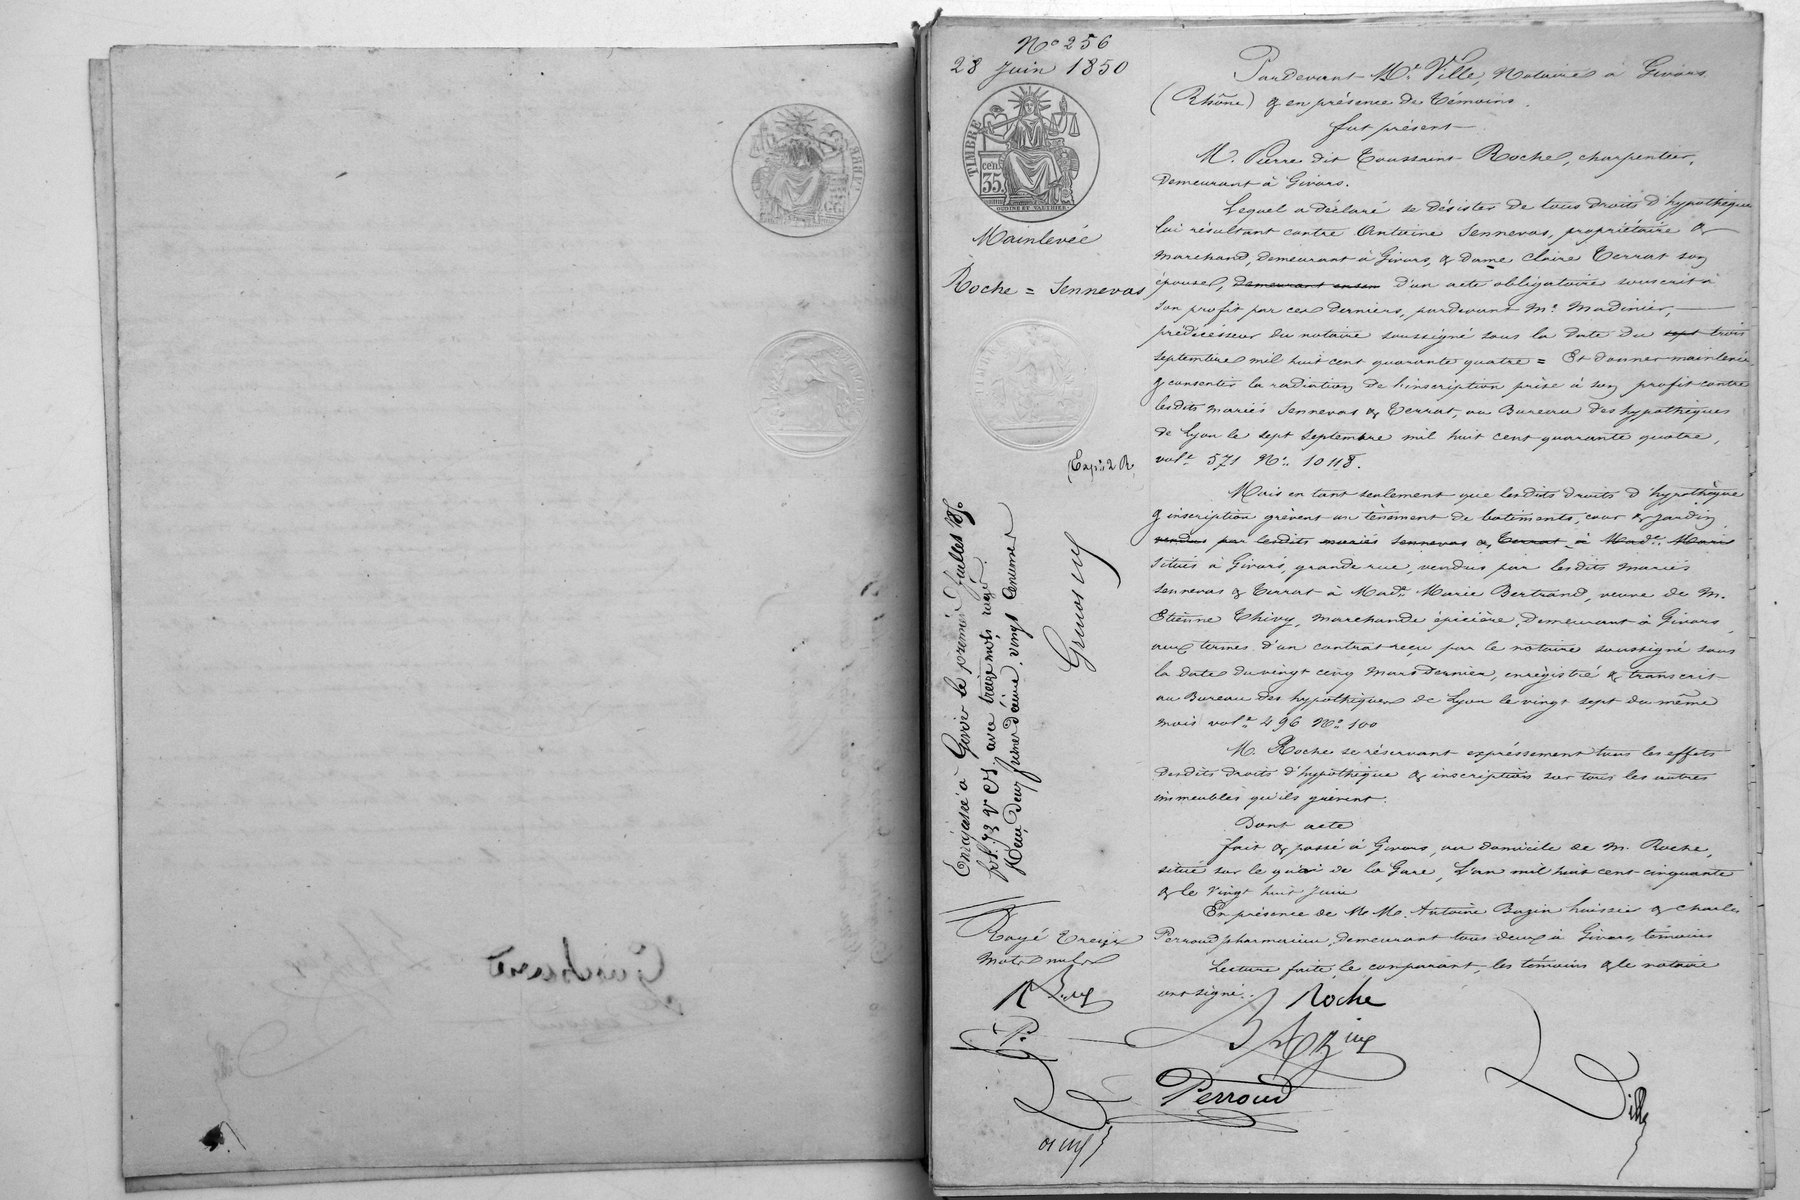 No 256
28 Juin 1850
TIMBRE
cent
35
OUDINÉ ET VAUTHIER.
Mainlevée
Roche = Sennevas
Pardevant Me. Ville, Notaire à Givors
(Rhône) & en présence de témoins.
fut présent
M. Pierre dit Toussaint Roche, charpentier,
Demeurant à Givors.
Lequel a déclaré se désister de tous droits d'hypothèque
lui résultant contre Antoine Sennevas, propriétaire &
Marchand, demeurant à Givors, & dame Claire Terrat son
épouse, demeurant ensem d'un acte obligatoire souscrit à
son profit par ces derniers, pardevant Me. Madinier,
prédécesseur du notaire soussigné sous la date du sept trois
septembre mil huit cent quarante quatre = Et donner mainlevée
& consentir la radiation de l'inscription prise à son profit contre
lesdits mariés Sennevas & Terrat, au Bureau des hypothèques
de Lyon le sept septembre mil huit cent quarante quatre,
vole. 571 No. 1048.
Mais en tant seulement que lesdits droits d'hypothèque
& inscription grèvent un tènement de batiments, cour & jardin
vendus par lesdits mariés Sennevas & Terrat à Made. Marie
situés à Givors, grande rue, vendus par lesdits mariés
Sennevas & Terrat à Made. Marie Bertrand, veuve de M.
Etienne Thivy, marchande épicière, demeurant à Givors,
aux termes d'un contrat reçu par le notaire soussigné sous
la date du vingt cinq Mars dernier, enrégistré & transcrit
au Bureau des hypothèques de Lyon le vingt sept du même
mois vole. 496 No. 100
M. Roche se réservant expréssement tous les effets
desdits droits d'hypothèque & inscription sur tous les autres
immeubles qu'ils grèvent.
Dont acte
fait & passé à Givors, au domicile de M. Roche,
situé sur le quai de la Gare, L'an mil huit cent cinquante
& le vingt huit Juin
En présence de M.M. Antoine Bazin huissier & Charles
Perroud pharmacien, demeurant tous deux à Givors, témoins
Lecture faite, le comparant, les témoins & le notaire
ont signé.
Enregistré à Givors le premier Juillet 1850
fol. 73 V C 5, avec treize mots rayés.
Reçu deux francs, dixième vingt centimes
Rayé treize
Mots nuls
Roche
Bazin
Perroud
Ville